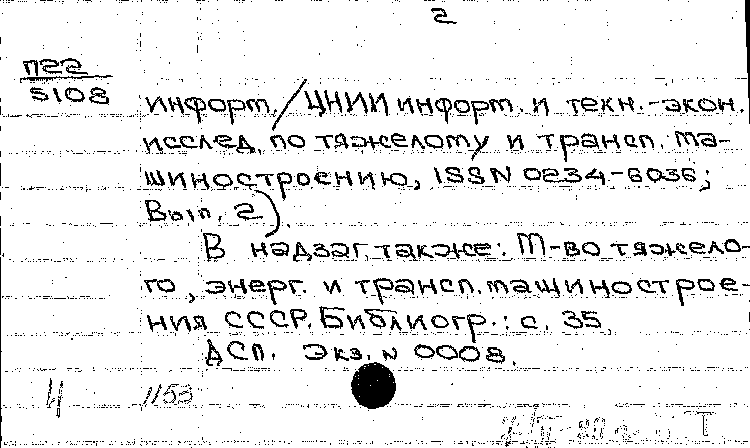 2
П22
5108
информ. / ЦНИИ информ. и техн.-экон.
исслед. по тяжелому и трансп. ма-
шиностроению, ISSN 0234-6036;
Вып. 2).
В надзаг. также: М-во тяжело-
го, энерг. и трансп. машинострое-
ния СССР. Библиогр.: с. 35
ДСП. Экз. N 0008.
И 1153